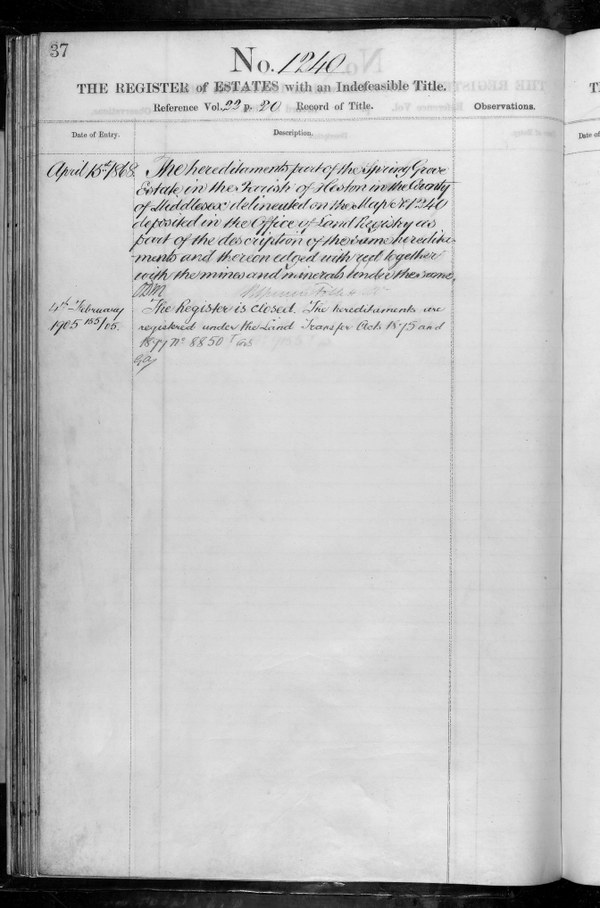 37
No. 1240
THE REGISTER of ESTATES with an Indefeasible Title.
Reference Vol. 22 p. 20 Record of Title.
Observations.
Date of Entry.
Description.
April 15th 1868.
The hereditaments part of the Spring Grove
Estate in the Parish of Heston in the County
of Middlesex delineated on the Map No 1240
deposited in the Office of Land Registry as
part of the description of the same heredita-
ments and thereon edged with red together
with the mines and minerals under the same.
4th February
1905 155/05.
The Register is closed. The hereditaments are
registered under the Land Transfer Acts 1875 and
1897 No 8850